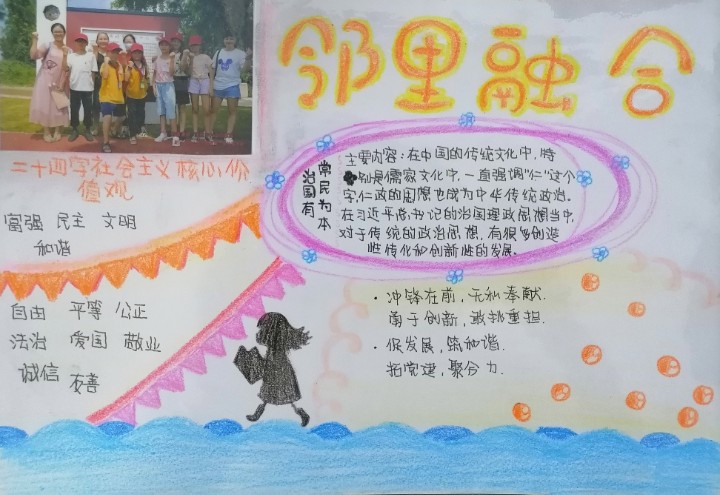 邻里融合
二十四字社会主义核心价
值观
富强 民主 文明
和谐
自由 平等 公正
法治 爱国 敬业
诚信 友善
治国有
常民为本
主要内容:在中国的传统文化中,特
别是儒家文化中,一直强调“仁”这个
字,仁政的思想也成为中华传统政治。
在习近平总书记的治国理政思想当中,
对于传统的政治思想,有很多创造
性传化和创新性的发展。
·冲锋在前,无私奉献.
勇于创新,敢挑重担.
·促发展,筑和谐.
拓党建,聚合力.